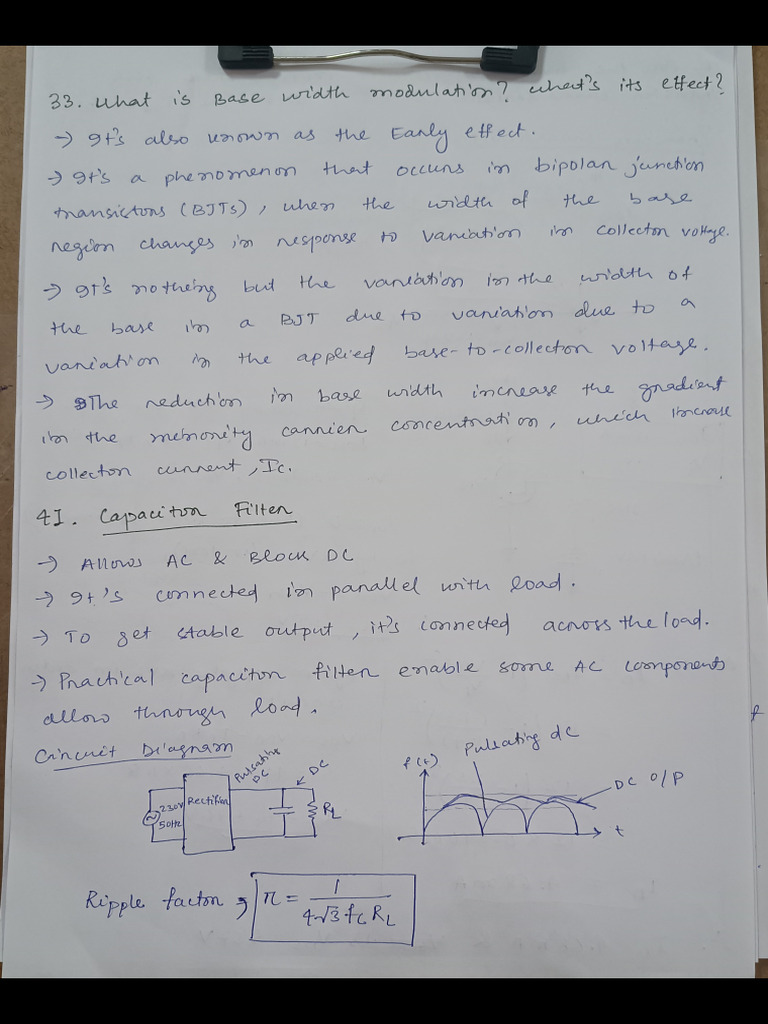 33. What is Base width modulation? What's its effect?
→ It's also known as the Early effect.
→ It's a phenomenon that occurs in bipolar junction
transistors (BJTs), when the width of the base
region changes in response to variation in collector voltage.
→ It's nothing but the variation in the width of
the base in a BJT due to variation due to a
variation in the applied base-to-collector voltage.
→ The reduction in base width increase the gradient
in the minority carrier concentration, which increase
collector current, Ic.
41. Capacitor Filter
→ Allows AC & Block DC
→ It's connected in parallel with load.
→ To get stable output, it's connected across the load.
→ Practical capacitor filter enable some AC components
allow through load.
Circuit Diagram
230V
50Hz
Rectifier
Pulsating
DC
DC
RL
f(t)
Pulsating dc
DC O/P
t
Ripple factor, r = 1
4√3 fc RL